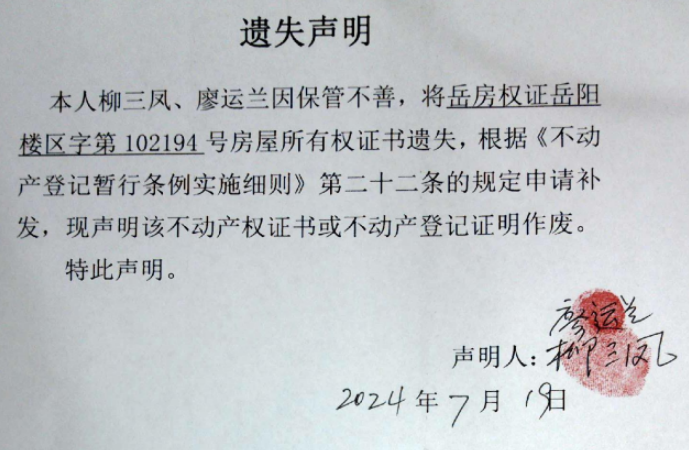 遗失声明
本人柳三凤、廖运兰因保管不善，将岳房权证岳阳
楼区字第 102194 号房屋所有权证书遗失，根据《不动
产登记暂行条例实施细则》第二十二条的规定申请补
发，现声明该不动产权证书或不动产登记证明作废。
特此声明。
廖运兰
声明人：柳三凤
2024 年 7 月 19日